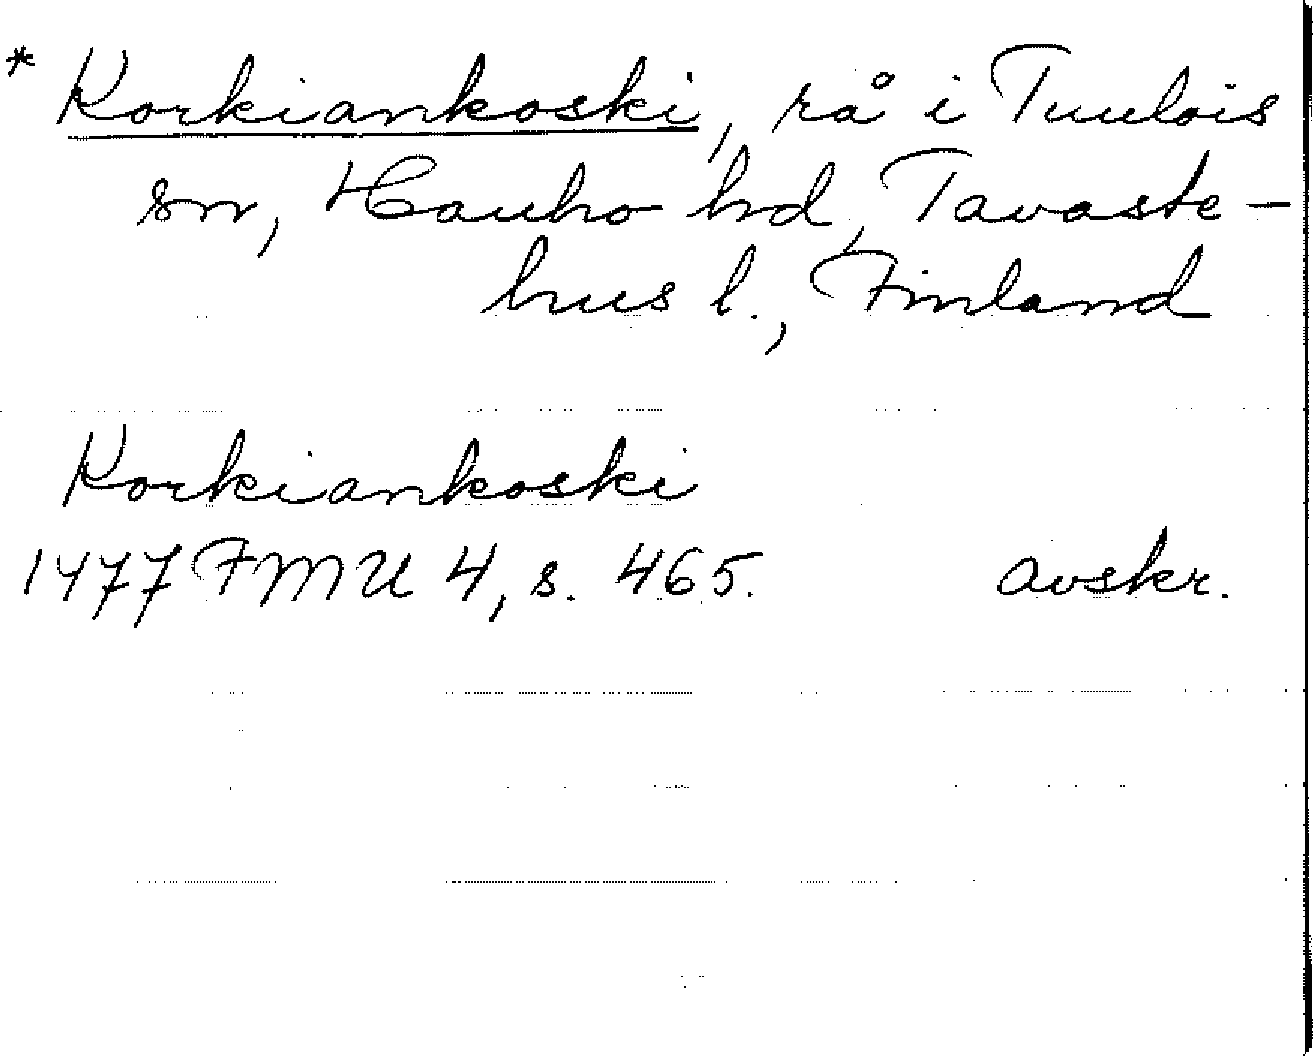 * Korkiankoski, rå i Tuulois
sn, Hauho hd, Tavaste-
hus l., Finland
Korkiankoski
1477 FMU 4, s. 465. avskr.